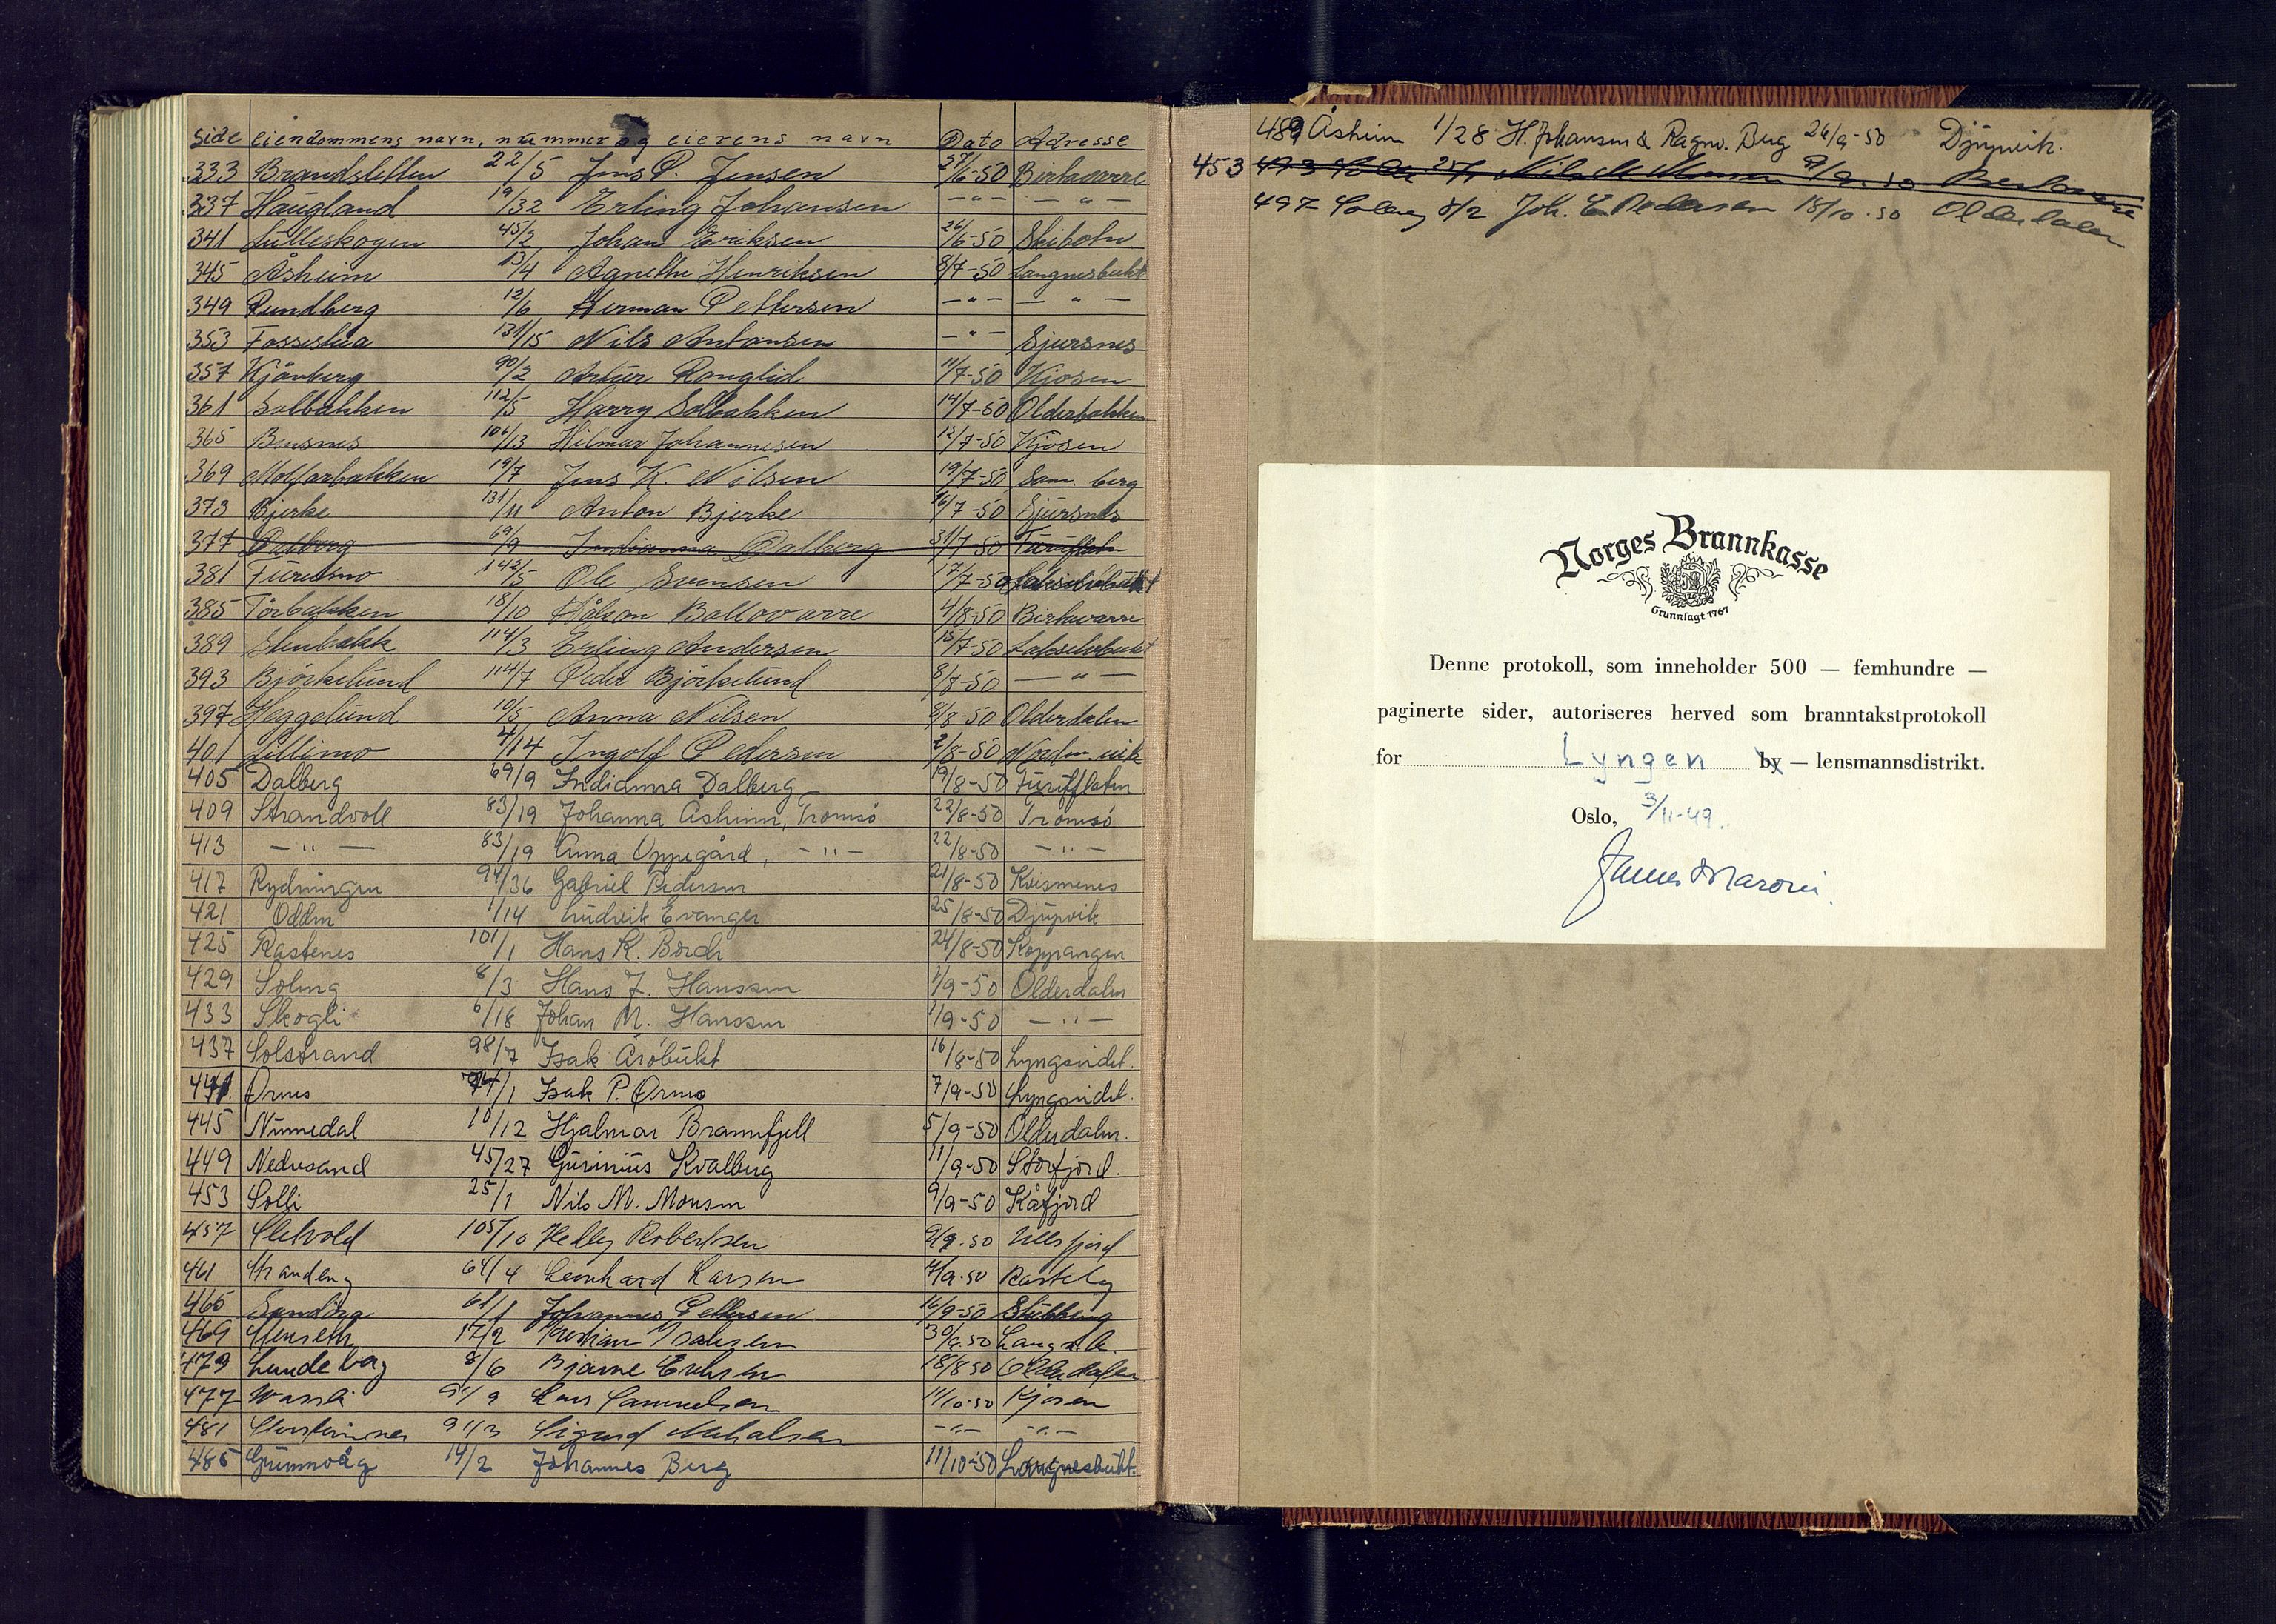 Side Eiendommens navn, nummer og eierens navn Dato Adresse
333 Brandsletten 22/5 Jens P. Jensen 27/6-50 Birtavarre
337 Haugland 19/32 Erling Johansen -"- -"-
341 Lilleskogen 45/2 Johan Eriksen 26/6-50 Skibotn
345 Åsheim 13/4 Agnethe Henriksen 8/7-50 Langnesbukt
349 Rundberg 12/6 Herman Pettersen -"- -"-
353 Fossestua 131/15 Nils Antonsen -"- Sjursnes
357 Kjänberg 90/2 Artur Ronglid 11/7-50 Kjosen
361 Solbakken 112/5 Harry Solbakken 14/7-50 Olderbakken
365 Bensnes 106/13 Hilmar Johannesen 12/7-50 Kjosen
369 Molfarbakken 19/7 Jens K. Nilsen 19/7-50 Sam. berg
373 Bjerke 131/11 Anton Bjerke 16/7-50 Sjursnes
377 Dalberg 69/9 Indianna Dalberg 31/7-50 Furuflaten
381 Furumo 142/5 Ole Svensen 17/7-50 Lakselvbukt
385 Torbakken 18/10 Håkon Ballovarre 4/8-50 Birtavarre
389 Stenbakk 114/3 Erling Andersen 15/7-50 Lakselvbukt
393 Björkelund 114/7 Peder Björkelund 8/8-50 -"-
397 Heggelund 10/5 Anna Nilsen 8/8-50 Olderdalen
401 Lillimo 4/14 Ingolf Pedersen 2/8-50 Nordm.vik
405 Dalberg 69/9 Indianna Dalberg 19/8-50 Furuflaten
409 Strandvoll 83/19 Johanna Åsheim, Tromsö 22/8-50 Tromsö
413 -"- 83/19 Anna Oppegård, -"- 22/8-50 -"-
417 Rydningen 94/36 Gabriel Pedersen 21/8-50 Koismenes
421 Odden 1/14 Ludvik Evanger 25/8-50 Djupvik
425 Rastenes 101/1 Hans K. Borch 24/8-50 Koppangen
429 Soleng 8/3 Hans J. Hanssen 1/9-50 Olderdalen
433 Skogli 6/18 Johan M. Hanssen 1/9-50 -"-
437 Solstrand 98/7 Isak Åröbukt 16/8-50 Lyngseidet.
441. Ornes 74/1 Isak P. Ornes 7/9-50 Lyngseidet.
445 Nimmedal 10/12 Hjalmar Brannfjell 5/9-50 Olderdalen.
449 Nedresand 45/27 Gurinius Kvalberg 11/9-50 Storfjord.
453 Solli 25/1 Nils M. Monsen 9/9-50 Kåfjord
457 Slettvold 105/10 Helby Robertsen 9/9.50 Ullsfjord
461 Strandeng 64/4 Leonhard Larsen 7/9.50 Rasteby
465 61/1 Johannes Pettersen 16/9-50 Stubbeng
469 17/2 Kristian Isaksen 30/9.50 Langn.b.
473 Lundeberg 8/6 Bjarne Eriksen 18/8 50 Olderdalen
477 9 Lars Samuelsen 11/10-50 Kjosen
481 91/3 Sigurd Mikalsen -"- -"-
485 Grunnvåg 14/2 Johannes Berg 11/10-50 Langnesbukt.
489 Åsheim 1/28 H. Johansen & Ragnv. Berg 26/9-50 Djupvik.
453 493 Solli 25/1 Nils M. Monsen 9/9.50
497 Soleng 8/2 Joh. E. Pedersen 18/10.50 Olderdalen
Norges Brannkasse
Grunnlagt 1767
Denne protokoll, som inneholder 500 — femhundre —
paginerte sider, autoriseres herved som branntakstprotokoll
for Lyngen by — lensmannsdistrikt.
Oslo, 3/11-49.